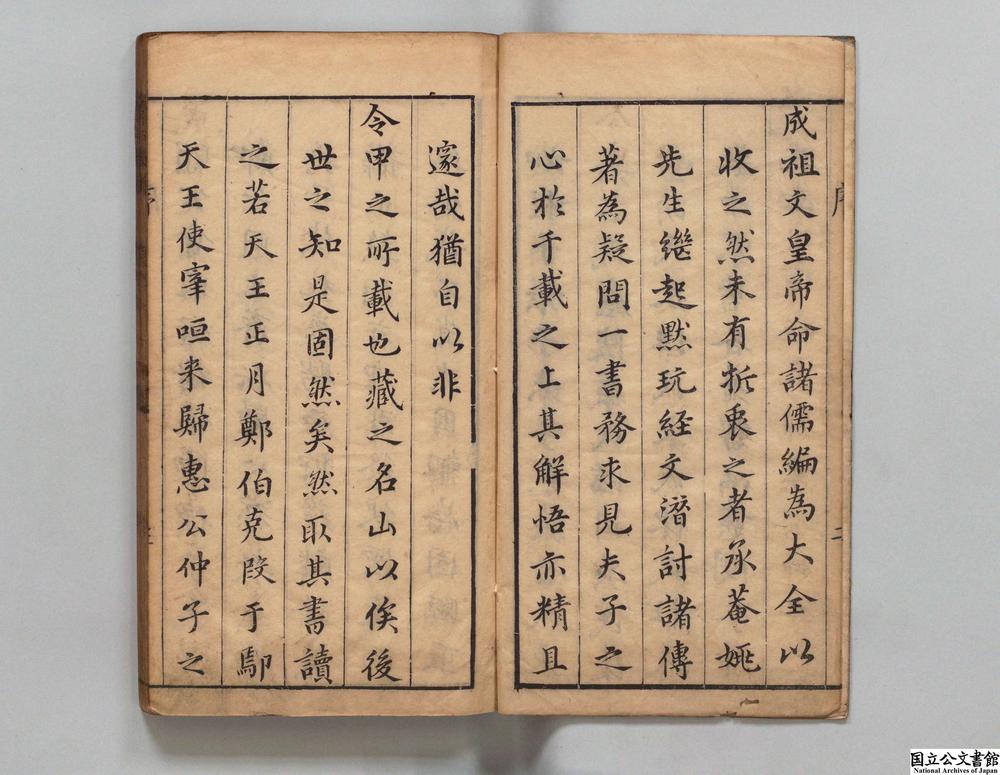 成祖文皇帝命諸儒編為大全以
收之然未有折衷之者承菴姚
先生繼起黙玩経文濳討諸傳
著為疑問一書務求見夫子之
心於千載之上其解悟亦精且
邃哉猶自以非
令甲之所載也藏之名山以俟後
世之知是固然矣然取其書讀
之若天王正月鄭伯克段于鄢
天王使宰咺来歸惠公仲子之
序
国立公文書館
National Archives of Japan